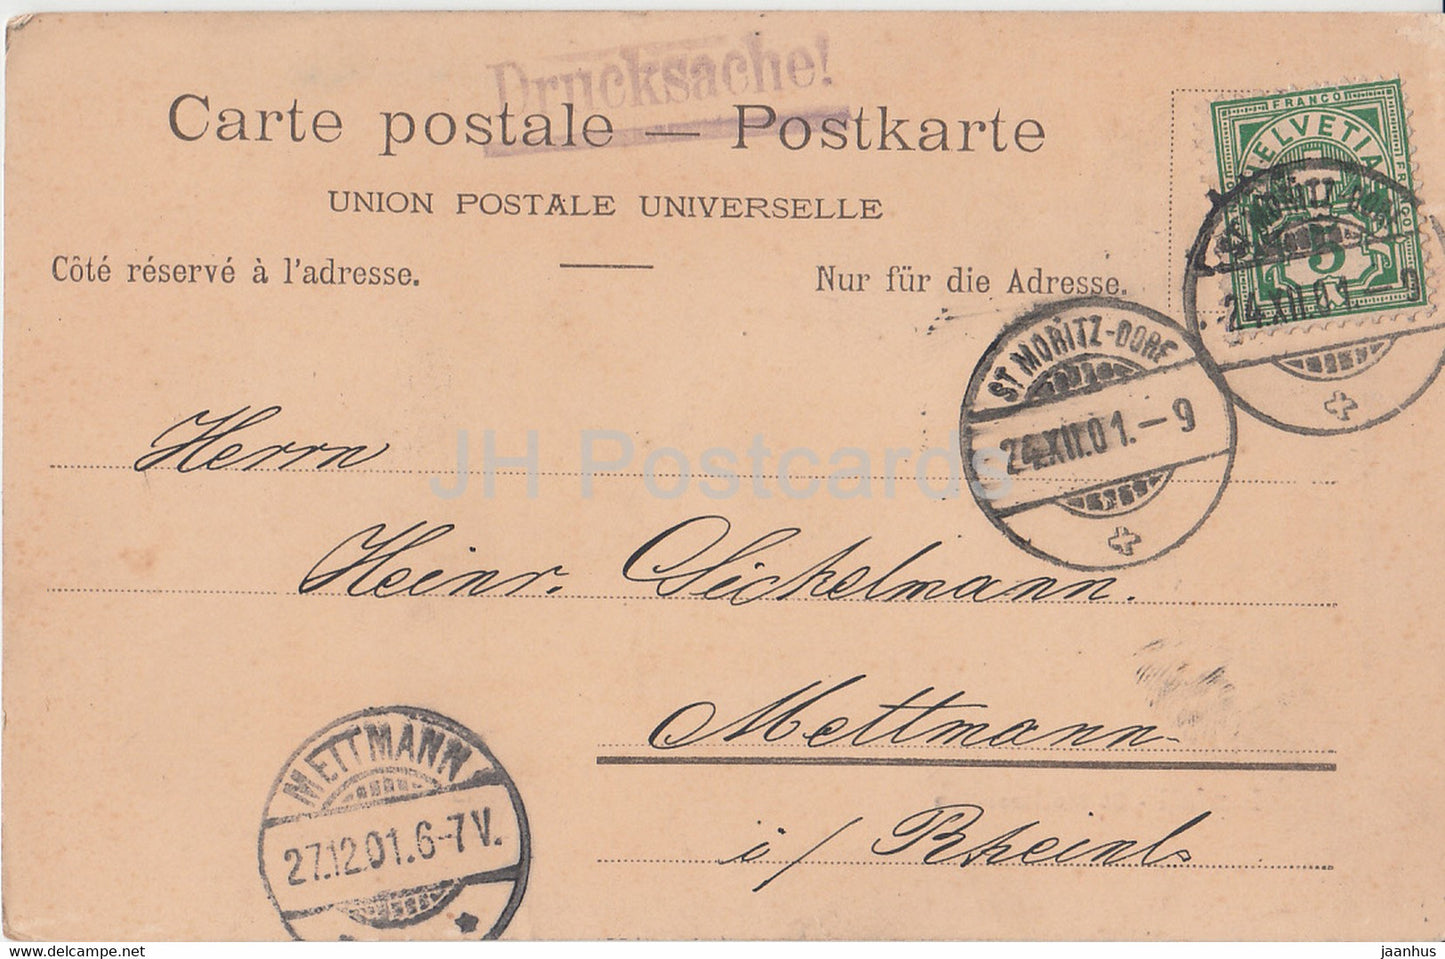 Drucksache!
Carte postale — Postkarte
UNION POSTALE UNIVERSELLE
Côté réservé à l'adresse.
Nur für die Adresse.
FRANCO
HELVETIA
FRANCO
5
ST. MORITZ-DORF
24.XII.01.–9
ST. MORITZ-DORF
24.XII.01.–9
JH Postcards
Herrn
Heinr. Sickelmann.
Mettmann
i/ Rheinl.
METTMANN
27.12.01.6-7V.
www.delcampe.net
jaanhus